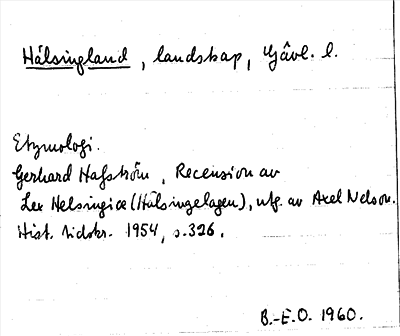 Hälsingland, landskap, Gävl. l.
Etymologi.
Gerhard Hafström, Recension av
Lex Helsingiæ (Hälsingelagen), utg. av Axel Nelson.
Hist. tidskr. 1954, s. 326.
B.-E.O. 1960.